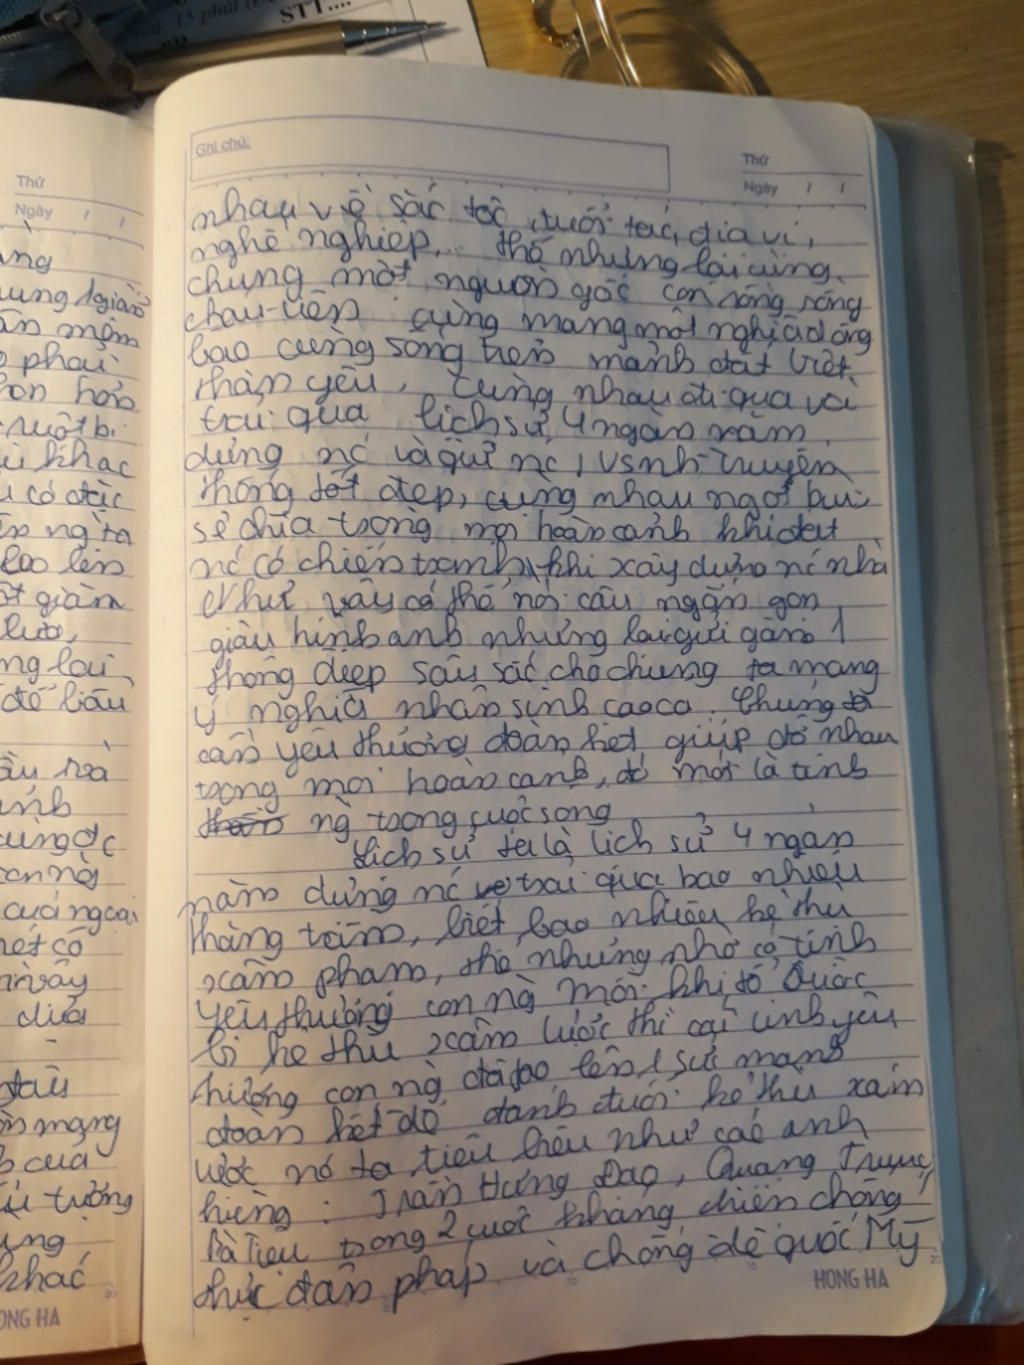 15 phút
STT....
Ghi chú:
Thứ
Ngày / /
Thứ
Ngày / /
nhau về sắc tộc, tuổi tác, địa vị,
nghề nghiệp,... thế nhưng lại cùng
chung một nguồn gốc con rồng sống
cháu tiên cùng mang một nghĩa đồng
bào cùng sống trên mảnh đất Việt
thân yêu, cùng nhau đi qua và
trải qua lịch sử 4 ngàn năm
dựng nc và giữ nc, truyền
thống tốt đẹp, cùng nhau ngọt bùi
sẻ chia trong mọi hoàn cảnh khi đất
nc có chiến tranh, khi xây dựng nc nhà
Như vậy có thể nói câu ngắn gọn
giàu hình ảnh nhưng lại gửi gắm 1
thông điệp sâu sắc cho chúng ta mang
ý nghĩa nhân sinh cao cả. Chúng ta
cần yêu thương đoàn kết giúp đỡ nhau
trong mọi hoàn cảnh, đó mới là tình
ng trong cuộc sống
Lịch sử ta là lịch sử 4 ngàn
năm dựng nc trải qua bao nhiêu
thăng trầm, biết bao nhiêu kẻ thù
xâm phạm, thế nhưng nhờ có tình
yêu thương con ng mỗi khi tổ Quốc
bị kẻ thù xâm lược thì cái tình yêu
thương con ng đã tạo lên 1 sức mạnh
đoàn kết để đánh đuổi kẻ thù xâm
lược nó ta tiêu biểu như các anh
hùng: Trần Hưng Đạo, Quang Trung,
Bà Triệu trong 2 cuộc kháng chiến chống
thực dân pháp và chống đế quốc Mỹ
HONG HA
ung 1 giàn
mềm
phải
hơn
ruột bị
khác
có đặc
ng ta
lên
giàm
lược,
lại
để
ra
cùng đc
con ng
cuả ngoại
có
vậy
dựa
mạng
của
tướng
khác
ONG HA